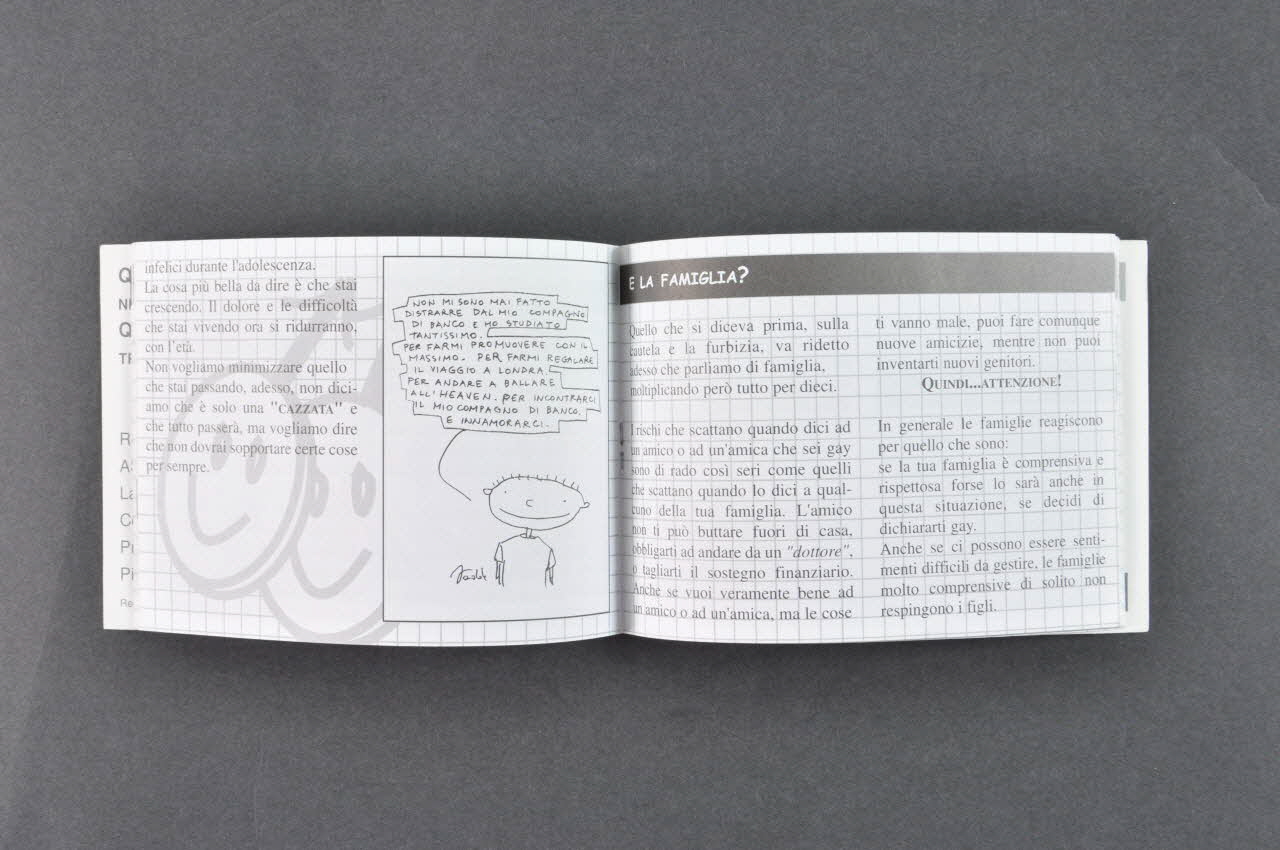 Q
NI
Q
TI
R
A
La
C
P
Pi
Re
infelici durante l'adolescenza.
La cosa più bella da dire è che stai
crescendo. Il dolore e le difficoltà
che stai vivendo ora si ridurranno,
con l'età.
Non vogliamo minimizzare quello
che stai passando, adesso, non dici-
amo che è solo una "CAZZATA" e
che tutto passerà, ma vogliamo dire
che non dovrai sopportare certe cose
per sempre.
NON MI SONO MAI FATTO
DISTRARRE DAL MIO COMPAGNO
DI BANCO E HO STUDIATO
TANTISSIMO.
PER FARMI PROMUOVERE CON IL
MASSIMO. PER FARMI REGALARE
IL VIAGGIO A LONDRA.
PER ANDARE A BALLARE
ALL'HEAVEN. PER INCONTRARCI
IL MIO COMPAGNO DI BANCO.
E INNAMORARCI.
E LA FAMIGLIA?
Quello che si diceva prima, sulla
cautela e la furbizia, va ridetto
adesso che parliamo di famiglia,
moltiplicando però tutto per dieci.
I rischi che scattano quando dici ad
un amico o ad un'amica che sei gay
sono di rado così seri come quelli
che scattano quando lo dici a qual-
cuno della tua famiglia. L'amico
non ti può buttare fuori di casa,
obbligarti ad andare da un "dottore",
o tagliarti il sostegno finanziario.
Anche se vuoi veramente bene ad
un amico o ad un'amica, ma le cose
ti vanno male, puoi fare comunque
nuove amicizie, mentre non puoi
inventarti nuovi genitori.
QUINDI...ATTENZIONE!
In generale le famiglie reagiscono
per quello che sono:
se la tua famiglia è comprensiva e
rispettosa forse lo sarà anche in
questa situazione, se decidi di
dichiararti gay.
Anche se ci possono essere senti-
menti difficili da gestire, le famiglie
molto comprensive di solito non
respingono i figli.